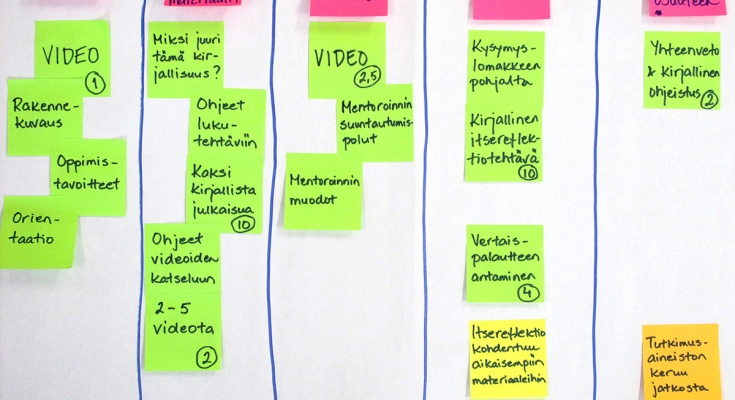 VIDEO
1
Rakenne-
kuvaus
Oppimis-
tavoitteet
Orien-
taatio
materiaali
Miksi juuri
tämä kir-
jallisuus?
Ohjeet
luku-
tehtäviin
Kaksi
kirjallista
julkaisua
10
Ohjeet
videoiden
katseluun
2-5
videota
2
VIDEO
2,5
Mentoroinnin
suuntautumis-
polut
Mentoroinnin
muodot
Kysymys-
lomakkeen
pohjalta
Kirjallinen
itsereflek-
tiotehtävä
10
Vertais-
palautteen
antaminen
4
Itsereflektio
kohdentuu
aikaisempiin
materiaaleihin
Yhteenveto
& kirjallinen
ohjeistus
2
Tutkimus-
aineiston
keruu
jatkosta